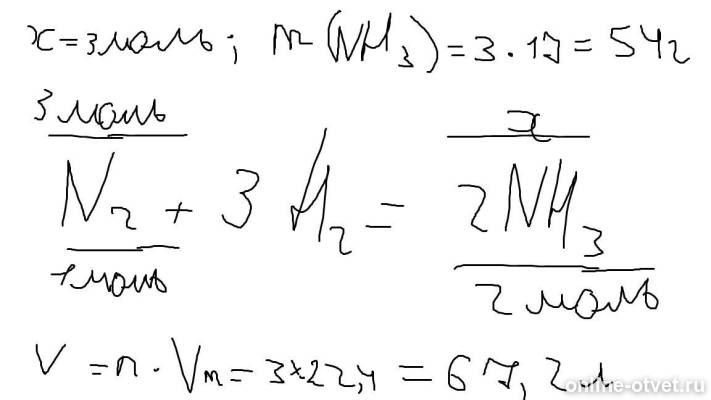 x = 3 моль; m (NH₃) = 3 · 17 = 54г
3 моль x
N₂ + 3 H₂ = 2NH₃
1 моль 2 моль
V = n · Vm = 3×22,4 = 67,2 л
online-otvet.ru